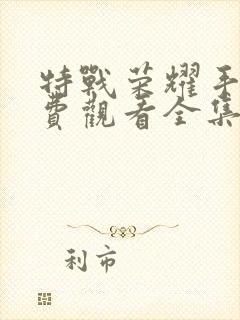 特戰荣耀手
費觀看全集
利市